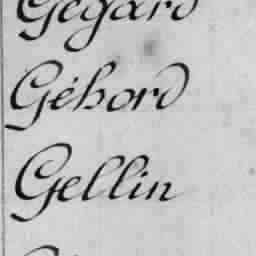 Gégard
Géhord
Gellin